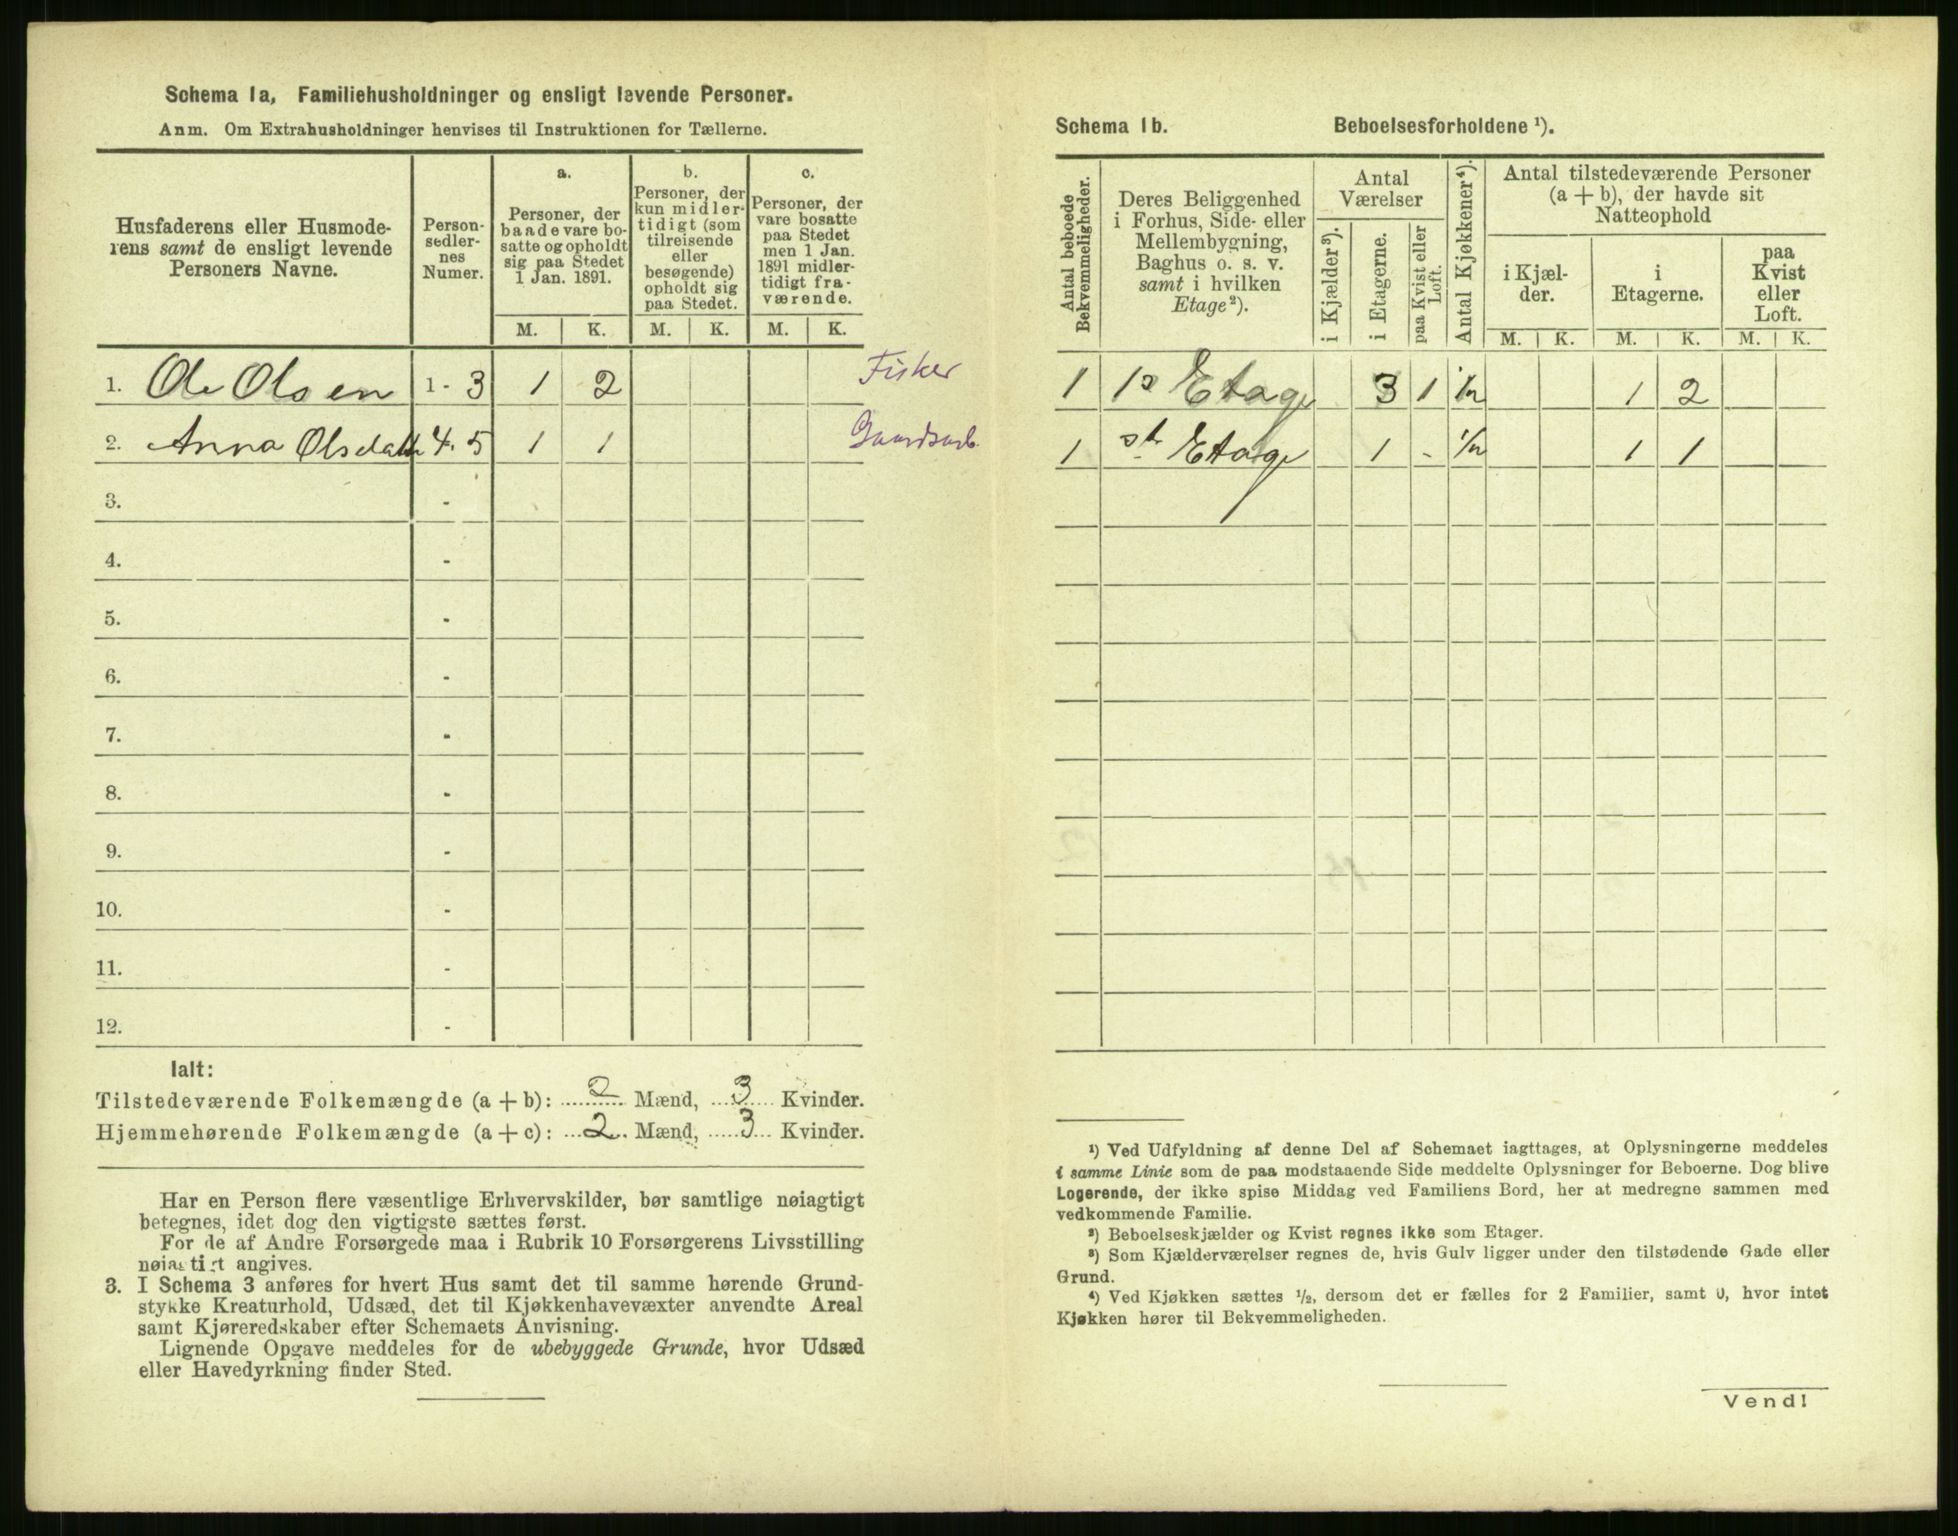 Schema 1a, Familiehusholdninger og ensligt levende Personer.
Anm. Om Extrahusholdninger henvises til Instruktionen for Tællerne.
Husfaderens eller Husmode-
rens samt de ensligt levende
Personers Navne.
Person-
sedler-
nes
Numer.
a.
Personer, der
baade vare bo-
satte og opholdt
sig paa Stedet
1 Jan. 1891.
b.
Personer, der
kun midler-
tidigt (som
tilreisende
eller
besøgende)
opholdt sig
paa Stedet.
c.
Personer, der
vare bosatte
paa Stedet
men 1 Jan.
1891 midler-
tidigt fra-
værende.
M. K. M. K. M. K.
1. Ole Olsen 1 - 3 1 2 Fisker
2. Anna Olsdatter 4 - 5 1 1 Gaardsarb.
3. -
4. -
5. -
6. -
7. -
8. -
9. -
10. -
11. -
12. -
Ialt:
Tilstedeværende Folkemængde (a + b): 2 Mænd, 3 Kvinder.
Hjemmehørende Folkemængde (a + c): 2 Mænd, 3 Kvinder.
Har en Person flere væsentlige Erhvervskilder, bør samtlige nøiagtigt
betegnes, idet dog den vigtigste sættes først.
For de af Andre Forsørgede maa i Rubrik 10 Forsørgerens Livsstilling
nøiagtigt angives.
3. I Schema 3 anføres for hvert Hus samt det til samme hørende Grund-
stykke Kreaturhold, Udsæd, det til Kjøkkenhavevæxter anvendte Areal
samt Kjøreredskaber efter Schemaets Anvisning.
Lignende Opgave meddeles for de ubebyggede Grunde, hvor Udsæd
eller Havedyrkning finder Sted.
Schema 1b. Beboelsesforholdene ¹).
Antal beboede
Bekvemmeligheder.
Deres Beliggenhed
i Forhus, Side- eller
Mellembygning,
Baghus o. s. v.
samt i hvilken
Etage²).
Antal
Værelser
i Kjælder³).
i Etagerne.
paa Kvist eller
Loft.
Antal Kjøkkener⁴).
Antal tilstedeværende Personer
(a + b), der havde sit
Natteophold
i Kjæl-
der.
i
Etagerne.
paa
Kvist
eller
Loft.
M. K. M. K. M. K.
1 1s Etage 3 1 ½ 1 2
1 st Etage 1 - ½ 1 1
¹) Ved Udfyldning af denne Del af Schemaet iagttages, at Oplysningerne meddeles
i samme Linie som de paa modstaaende Side meddelte Oplysninger for Beboerne. Dog blive
Logerende, der ikke spise Middag ved Familiens Bord, her at medregne sammen med
vedkommende Familie.
²) Beboelseskjælder og Kvist regnes ikke som Etager.
³) Som Kjælderværelser regnes de, hvis Gulv ligger under den tilstødende Gade eller
Grund.
⁴) Ved Kjøkken sættes ½, dersom det er fælles for 2 Familier, samt 0, hvor intet
Kjøkken hører til Bekvemmeligheden.
Vend!